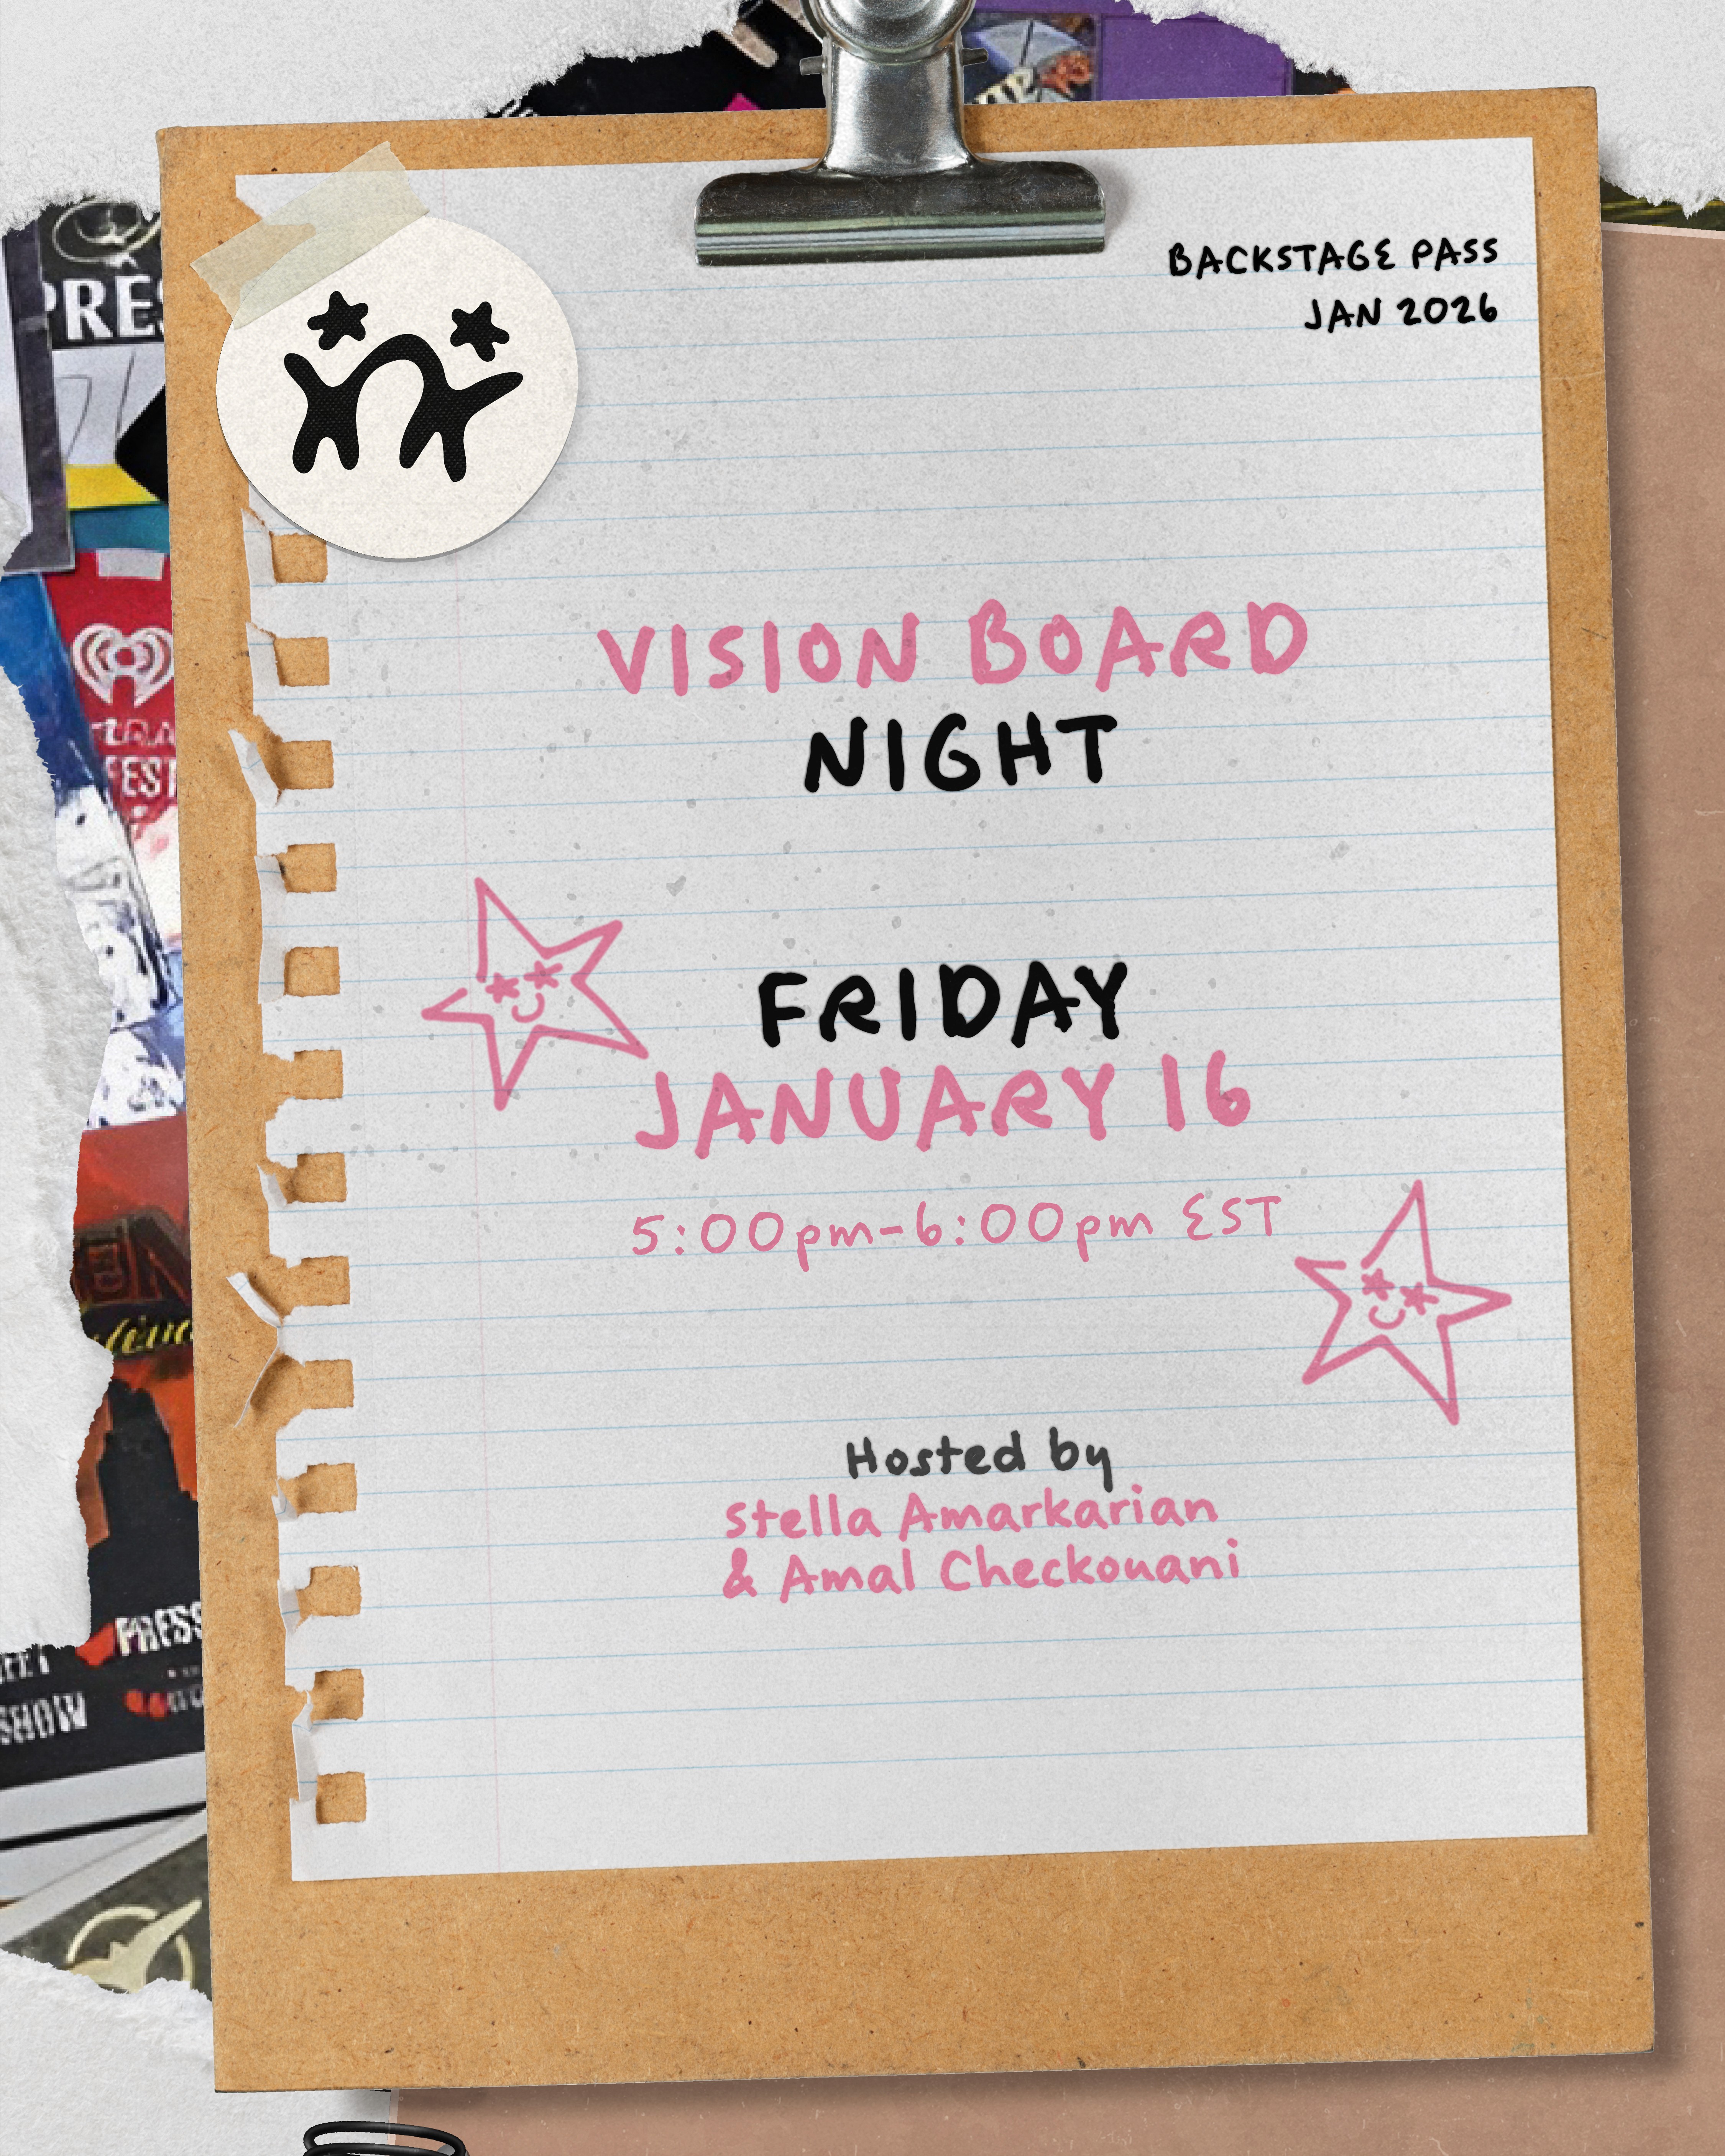 BACKSTAGE PASS
JAN 2026
VISION BOARD
NIGHT
FRIDAY
JANUARY 16
5:00pm-6:00pm EST
Hosted by
Stella Amarkarian
& Amal Checkouani
PRESS
SHOW